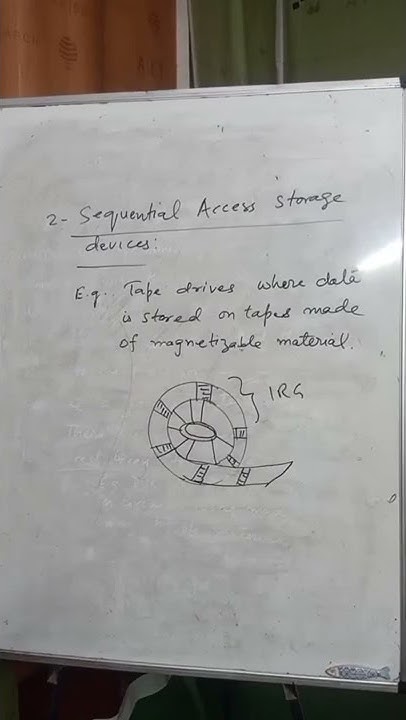 2- Sequential Access storage
devices:
E.g. Tape drives where data
is stored on tapes made
of magnetizable material.
IRG